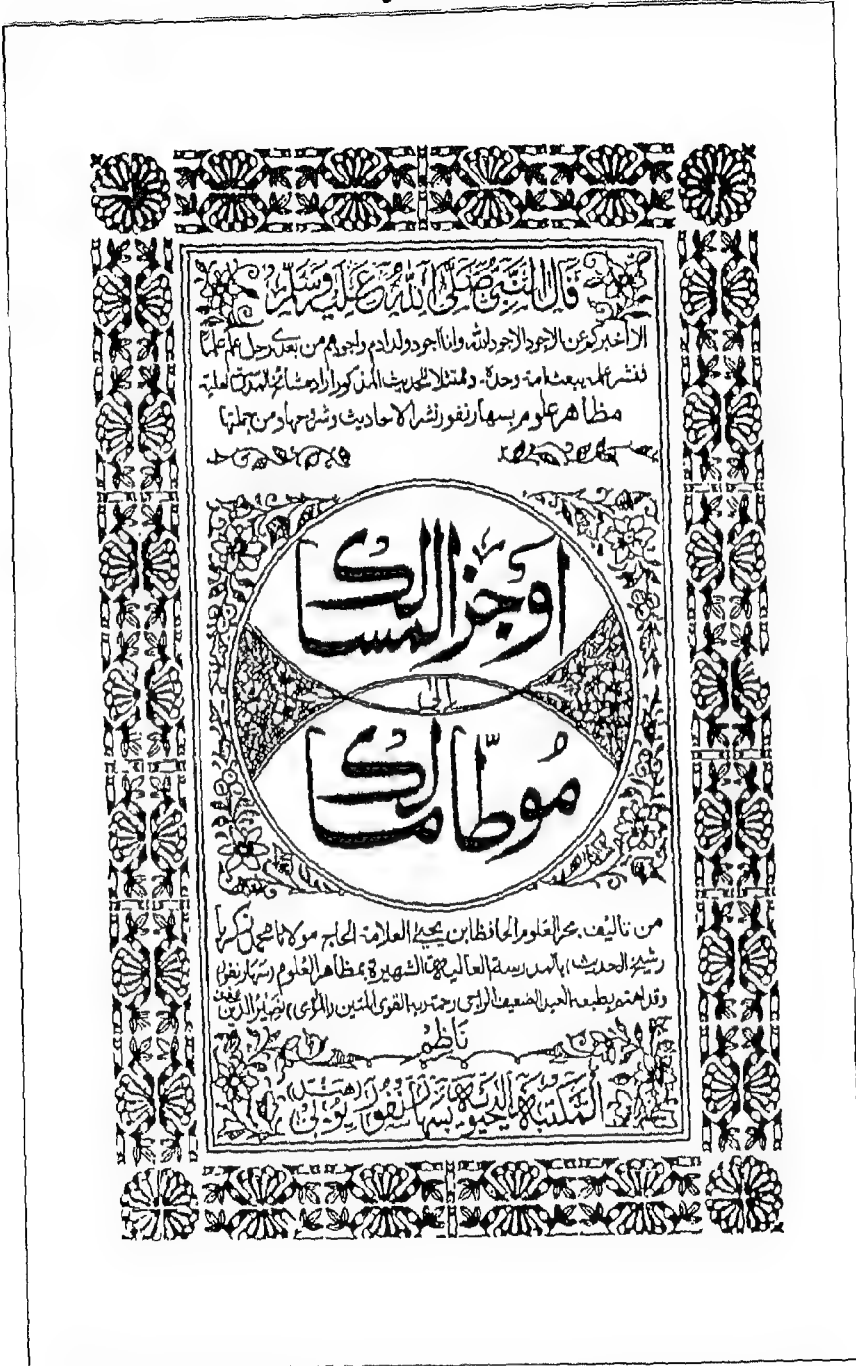 قَالَ النَّبِيُّ صَلَّى اللهُ عَلَيْهِ وَسَلَّمَ
الا اخبركم عن الاجود الاجود الله وانا اجود ولد ادم واجودهم من بعدى رجل علم علما
فنشر علمه يبعث امة وحدة وممتثلا للحديث المذكور اراد مشائخ المدرسة العلية
مظاهر علوم بسهارنفور نشر الاحاديث وشروحها ومن جملتها
اَوجز المسالك
الى
مُوطّا مالك
من تاليف بحر العلوم الحافظ ابن يحيى العلامة الحاج مولانا محمد زكريا
شيخ الحديث بالمدرسة العالية الشهيرة بمظاهر العلوم سهارنفور
وقد اهتم بطبعه العبد الضعيف الراجى رحمة ربه القوى المتين نصير الدين
ناظم
المكتبة اليحيوية سهارنفور يوپى